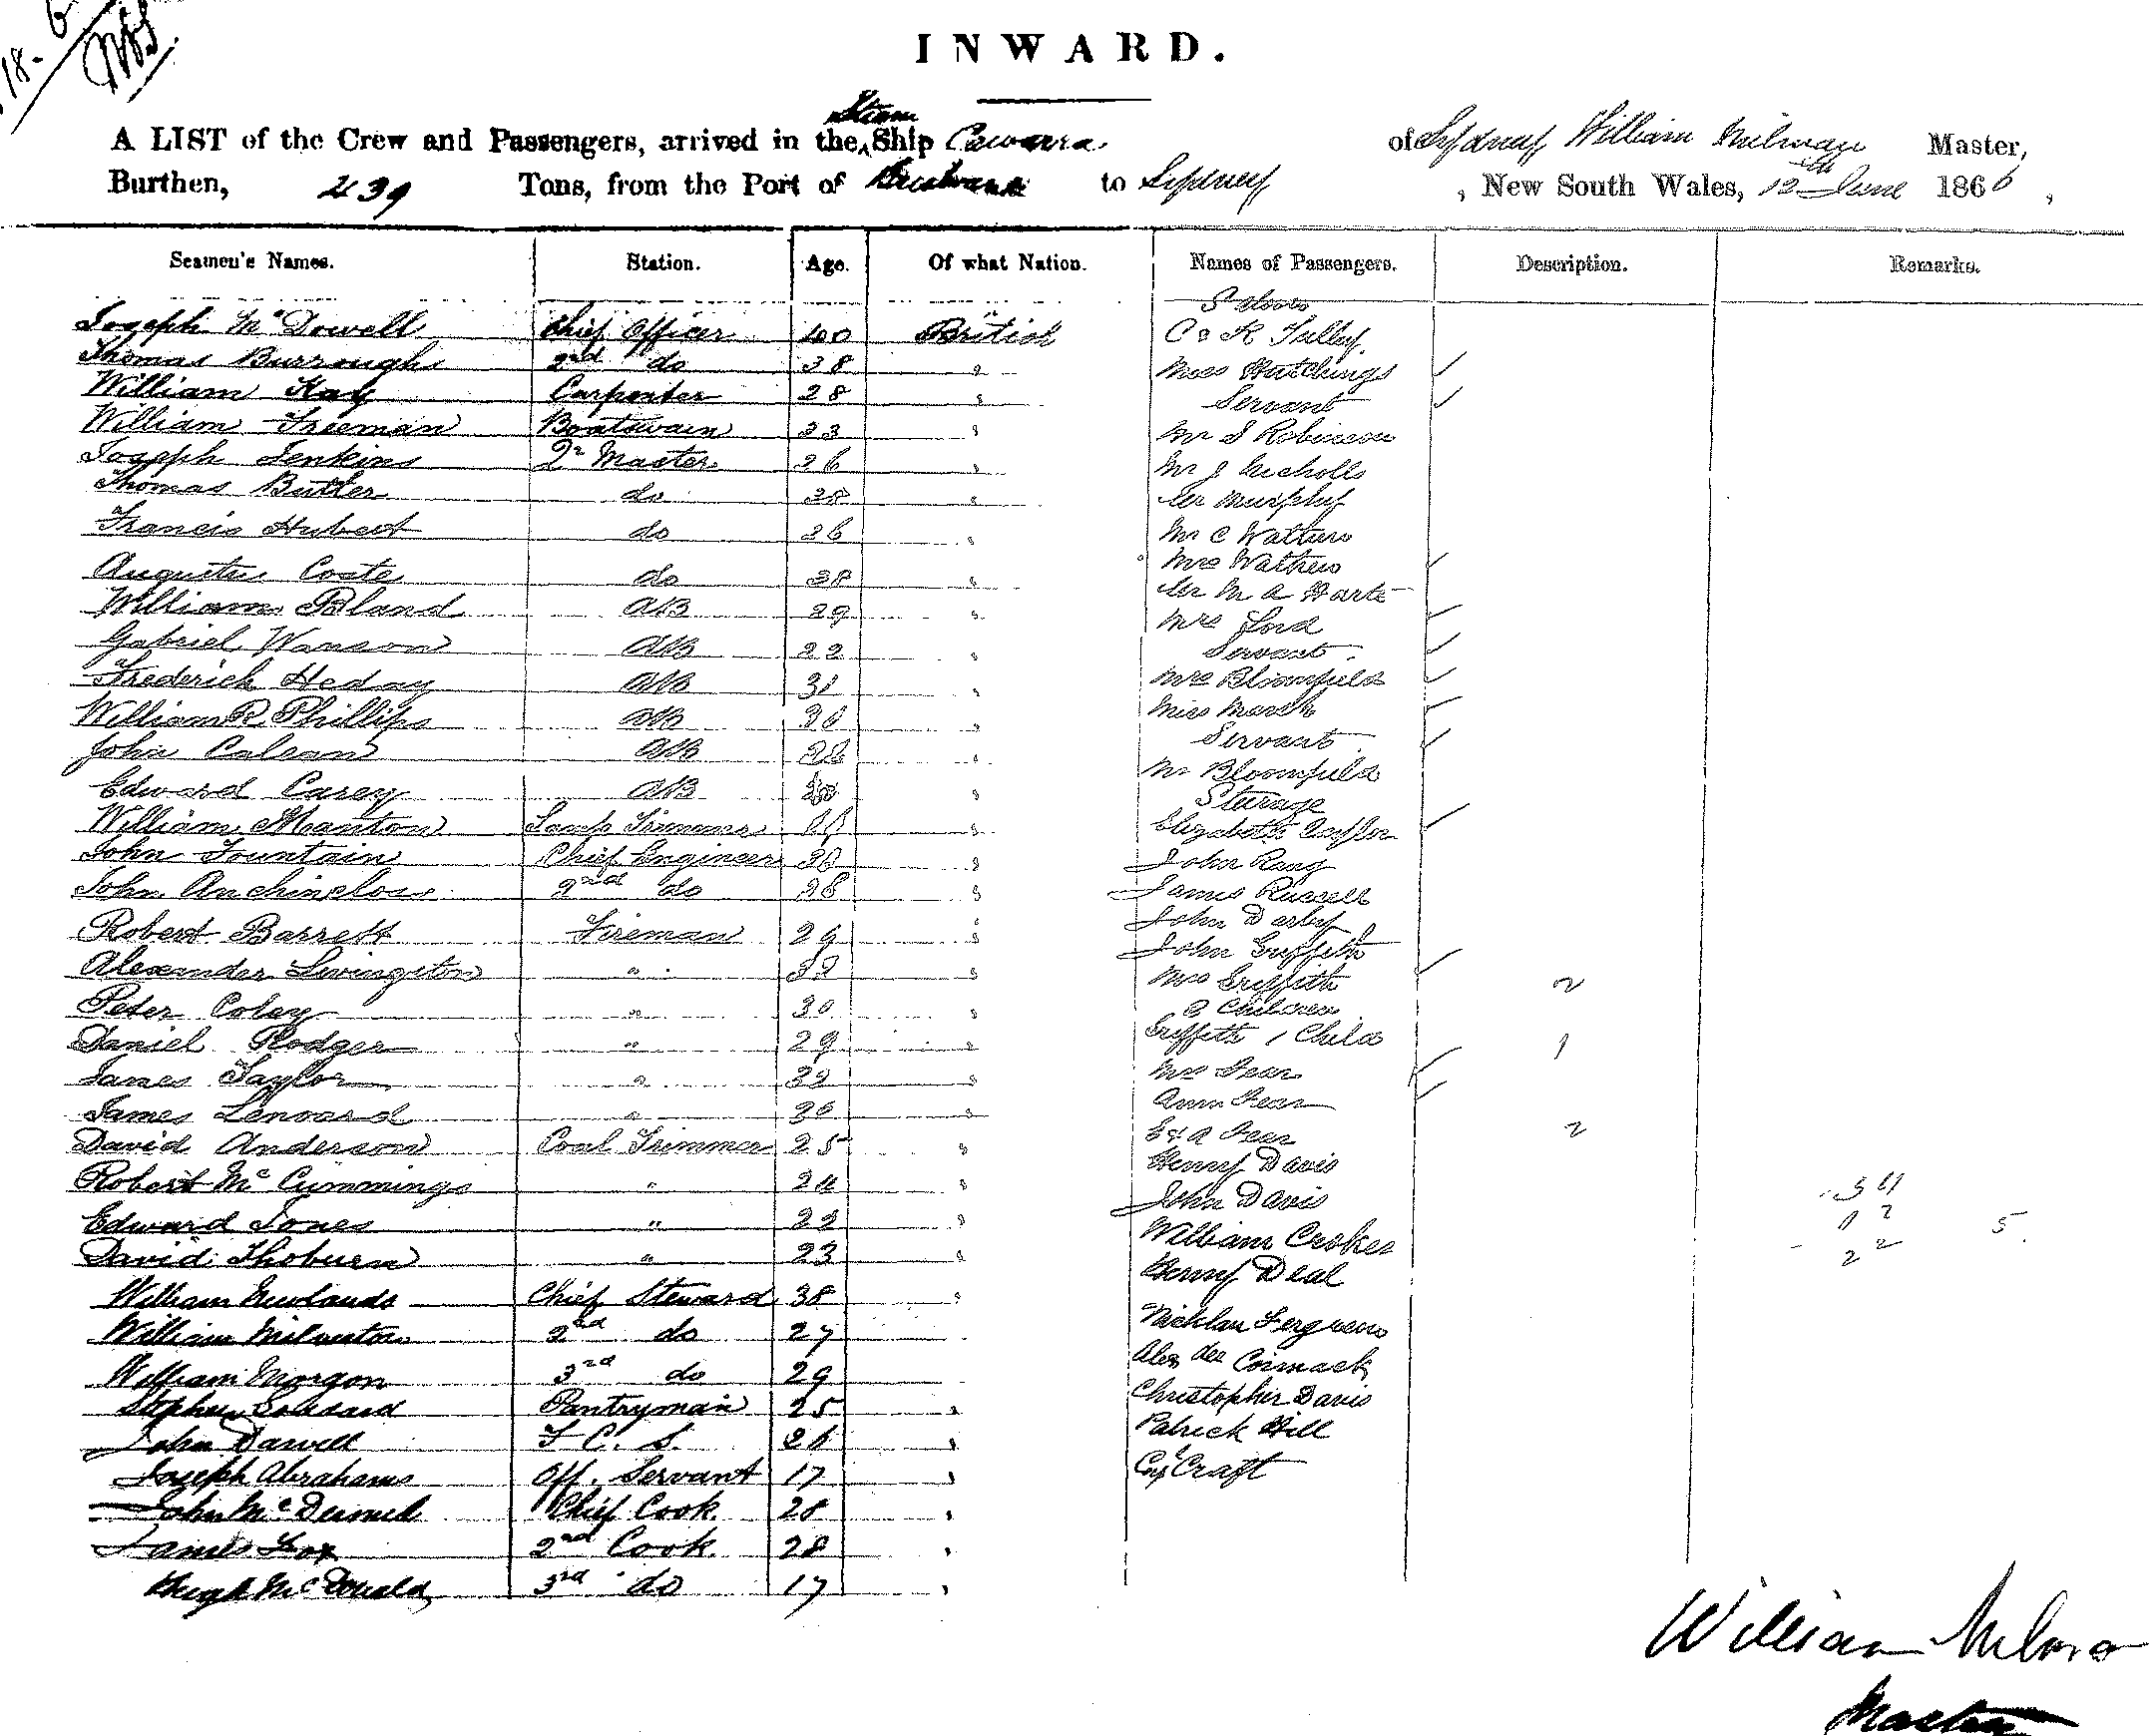 18. 6
INWARD.
A LIST of the Crew and Passengers, arrived in the Steam Ship Cawarra of Sydney William Milman Master,
Burthen, 439 Tons, from the Port of Brisbane to Sydney, New South Wales, 12th June 1866,
Seamen's Names. Station. Age. Of what Nation. Names of Passengers. Description. Remarks.
Saloon
Joseph McDowell Chief Officer 40 British C R Tully
Thomas Burroughs 2nd do 38 " Miss Hutchings
William Hay Carpenter 28 " Servant
William Freeman Boatswain 23 " Mr S Robinson
Joseph Jenkins Qr Master 26 " Mr J Nicholls
Thomas Butler do 28 " Mr Murphy
Francis Hubert do 26 " Mr C Watkins
Augustus Coste do 28 " Mrs Watkins
William Bland AB 29 " Mr M A Harte
Mrs Ford
Gabriel Wanson AB 22 " Servant
Frederick Heday AB 31 " Mrs Bloomfield
William R Phillips AB " Miss Marsh
John AB " Servant
Mr Bloomfield
Edward Carey AB " Steerage
William Manton Lamp Trimmer " Elizabeth Taylor
John Fountain Chief Engineer 30 " John Rang
John Auchincloss 2nd do 28 " James Russell
John Darby
Robert Barrett Fireman 29 " John Griffith
Alexander Livingston " 32 " Mrs Griffith
Peter Coley " 30 " 2 Children 2
Daniel Rodger " 29 " Griffith 1 Child 1
James Taylor " 32 " Mrs Fear
James Lenoard " 26 " Ann Fear
David Anderson Coal Trimmer 25 " E & A Fear 2
Henry Davis
Robert McCummings " 24 " John Davis 34
Edward Jones " 22 " William Crokes 12 5
David Thoburn " 23 " Henry Deal 22
William Newlands Chief Steward 38 "
William Milverton 2nd do 27 Nichlau Ferguson
William Morgan 3rd do 29 Alexder Cormack
Stephen Goddard Pantryman 25 " Christopher Davis
John Darvell F. C. S. 26 " Patrick Hill
Joseph Abrahams Off. Servant 17 " Craft
John McDermid Chief Cook 28 "
James Fox 2nd Cook 28 "
Hugh McDonald 3rd do 17 "
William Milman
Master